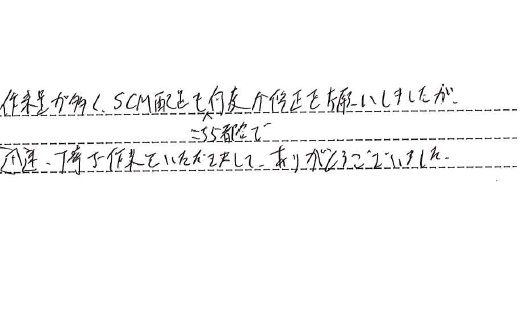 作業量が多く、SCM配送も何度か修正をお願いしましたが、
こちら都合で
迅速、丁寧な作業をいただきまして、ありがとうございました。